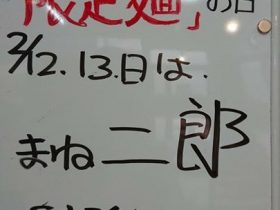 「限定麺」の日
2/12.13.日は.
まね二郎